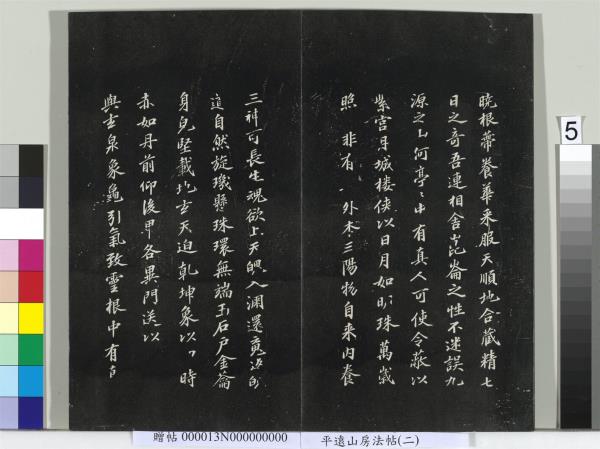 曉根蒂養華采服天順地合藏精七
日之奇吾連相舍崑崙之性不迷誤九
源之山何亭亭中有真人可使令蔽以
紫宮丹城樓俠以日月如明珠萬歲
照 非有 外本三陽物自来內養
三神可長生魂欲上天魄入淵還魂返
道自然旋璣懸珠環無端玉石戶金籥
身兒堅載地玄天迫乾坤象以 時
赤如丹前仰後甲各異門送以
與玄泉象龜引氣致靈根中有
5
贈帖 000013N000000000
平遠山房法帖(二)